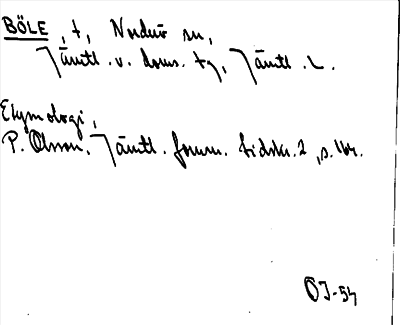 BÖLE, t, Norderö sn,
Jämtl. v. doms. tg, Jämtl. L.
Etymologi,
P. Olsson, Jämtl. fornm. tidskr. 2, s.
ÖJ-54